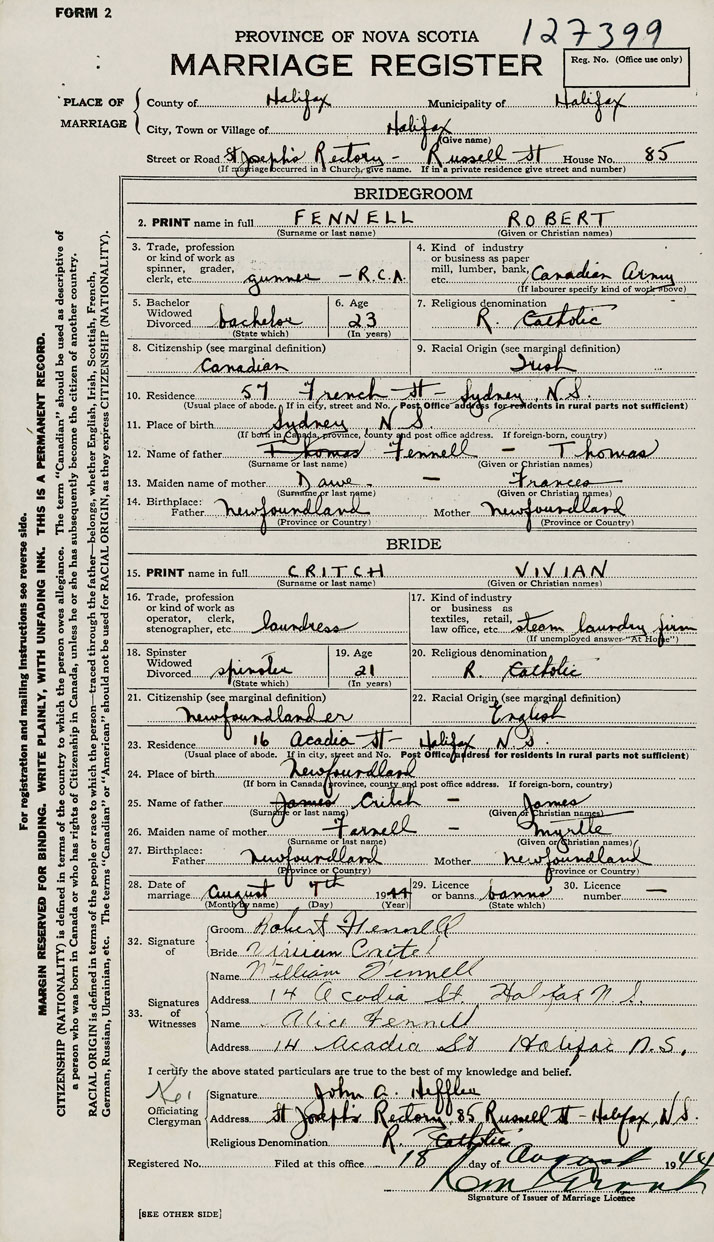 FORM 2
127399
PROVINCE OF NOVA SCOTIA
MARRIAGE REGISTER
Reg. No. (Office use only)
PLACE OF MARRIAGE
County of Halifax Municipality of Halifax
City, Town or Village of Halifax
(Give name)
Street or Road St Joseph's Rectory - Russell St House No. 85
(If marriage occurred in a Church, give name. If in a private residence give street and number)
BRIDEGROOM
2. PRINT name in full FENNELL ROBERT
(Surname or last name) (Given or Christian names)
3. Trade, profession or kind of work as spinner, grader, clerk, etc. gunner - R.C.A.
4. Kind of industry or business as paper mill, lumber, bank, etc. Canadian Army
(If labourer specify kind of work above)
5. Bachelor Widowed Divorced bachelor
(State which)
6. Age 23
(In years)
7. Religious denomination R. Catholic
8. Citizenship (see marginal definition) Canadian
9. Racial Origin (see marginal definition) Irish
10. Residence 57 French St - Sydney, N.S.
(Usual place of abode. If in city, street and No. Post Office address for residents in rural parts not sufficient)
11. Place of birth Sydney, N.S.
(If born in Canada, province, county and post office address. If foreign-born, country)
12. Name of father Thomas Fennell - Thomas
(Surname or last name) (Given or Christian names)
13. Maiden name of mother Dawe - Frances
(Surname or last name) (Given or Christian names)
14. Birthplace: Father Newfoundland Mother Newfoundland
(Province or Country) (Province or Country)
BRIDE
15. PRINT name in full CRITCH VIVIAN
(Surname or last name) (Given or Christian names)
16. Trade, profession or kind of work as operator, clerk, stenographer, etc laundress
17. Kind of industry or business as textiles, retail, law office, etc. steam laundry firm
(If unemployed answer "At Home")
18. Spinster Widowed Divorced spinster
(State which)
19. Age 21
(In years)
20. Religious denomination R. Catholic
21. Citizenship (see marginal definition) Newfoundlander
22. Racial Origin (see marginal definition) English
23. Residence 16 Acadia St - Halifax, N.S.
(Usual place of abode. If in city, street and No. Post Office address for residents in rural parts not sufficient)
24. Place of birth Newfoundland
(If born in Canada, province, county and post office address. If foreign-born, country)
25. Name of father James Critch - James
(Surname or last name) (Given or Christian names)
26. Maiden name of mother Farnell - Myrtle
(Surname or last name) (Given or Christian names)
27. Birthplace: Father Newfoundland Mother Newfoundland
(Province or Country) (Province or Country)
28. Date of marriage August 7th 1944
(Month by name) (Day) (Year)
29. Licence or banns banns
(State which)
30. Licence number —
32. Signature of
Groom Robert Fennell
Bride Vivian Critch
33. Signatures of Witnesses
Name William Fennell
Address 14 Acadia St. Halifax N.S.
Name Alice Fennell
Address 14 Acadia St Halifax N.S.
I certify the above stated particulars are true to the best of my knowledge and belief.
Officiating Clergyman
Signature John A. Heffler
Address St Joseph's Rectory, 85 Russell St - Halifax, N.S.
Religious Denomination R. Catholic
Registered No. Filed at this office 18 day of August 1944
Signature of Issuer of Marriage Licence
[SEE OTHER SIDE]
For registration and mailing instructions see reverse side.
MARGIN RESERVED FOR BINDING. WRITE PLAINLY, WITH UNFADING INK. THIS IS A PERMANENT RECORD.
CITIZENSHIP (NATIONALITY) is defined in terms of the country to which the person owes allegiance. The term "Canadian" should be used as descriptive of
a person who was born in Canada or who has rights of Citizenship in Canada, unless he or she has subsequently become the citizen of another country.
RACIAL ORIGIN is defined in terms of the people or race to which the person—traced through the father—belongs, whether English, Irish, Scottish, French,
German, Russian, Ukrainian, etc. The terms "Canadian" or "American" should not be used for RACIAL ORIGIN, as they express CITIZENSHIP (NATIONALITY).